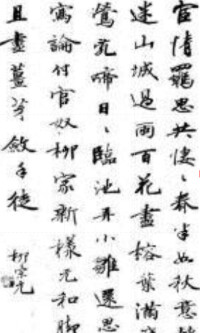 宦情羈思共悽〻春半如秋意
迷山城過雨百花盡榕葉滿
鶯亂啼日〻臨池弄小雛還思
寫論付官奴柳家新樣元和脚
且盡薑芽斂手徒
柳宗元